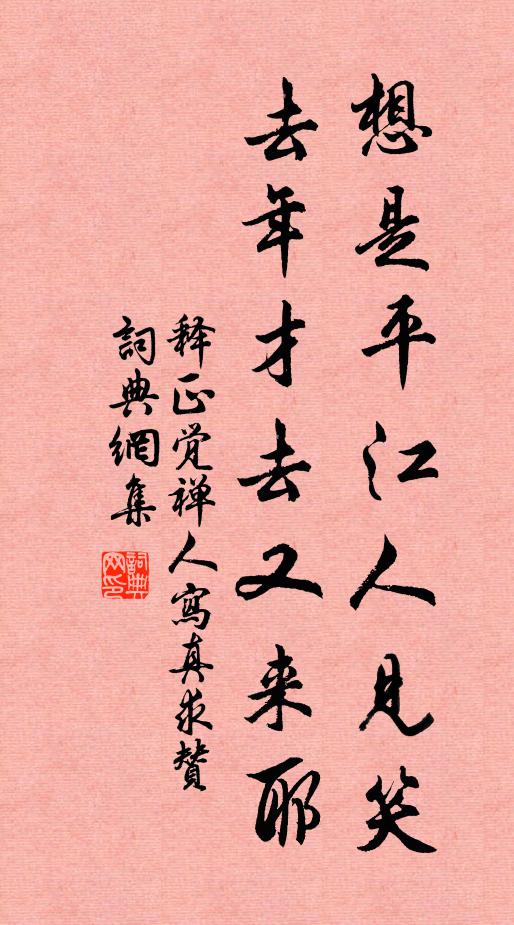 想是平江人見笑
去年才去又来耶
释正觉禅人寫真求贊
詞典網集
詞典
网印